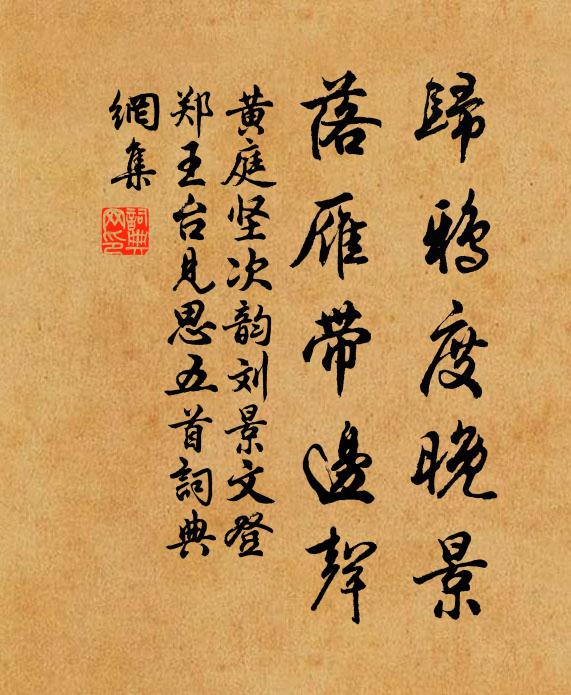 歸鴉度晚景
落雁帶邊聲
黄庭坚次韵刘景文登
郑王台見思五首詞典
網集
詞典
网印